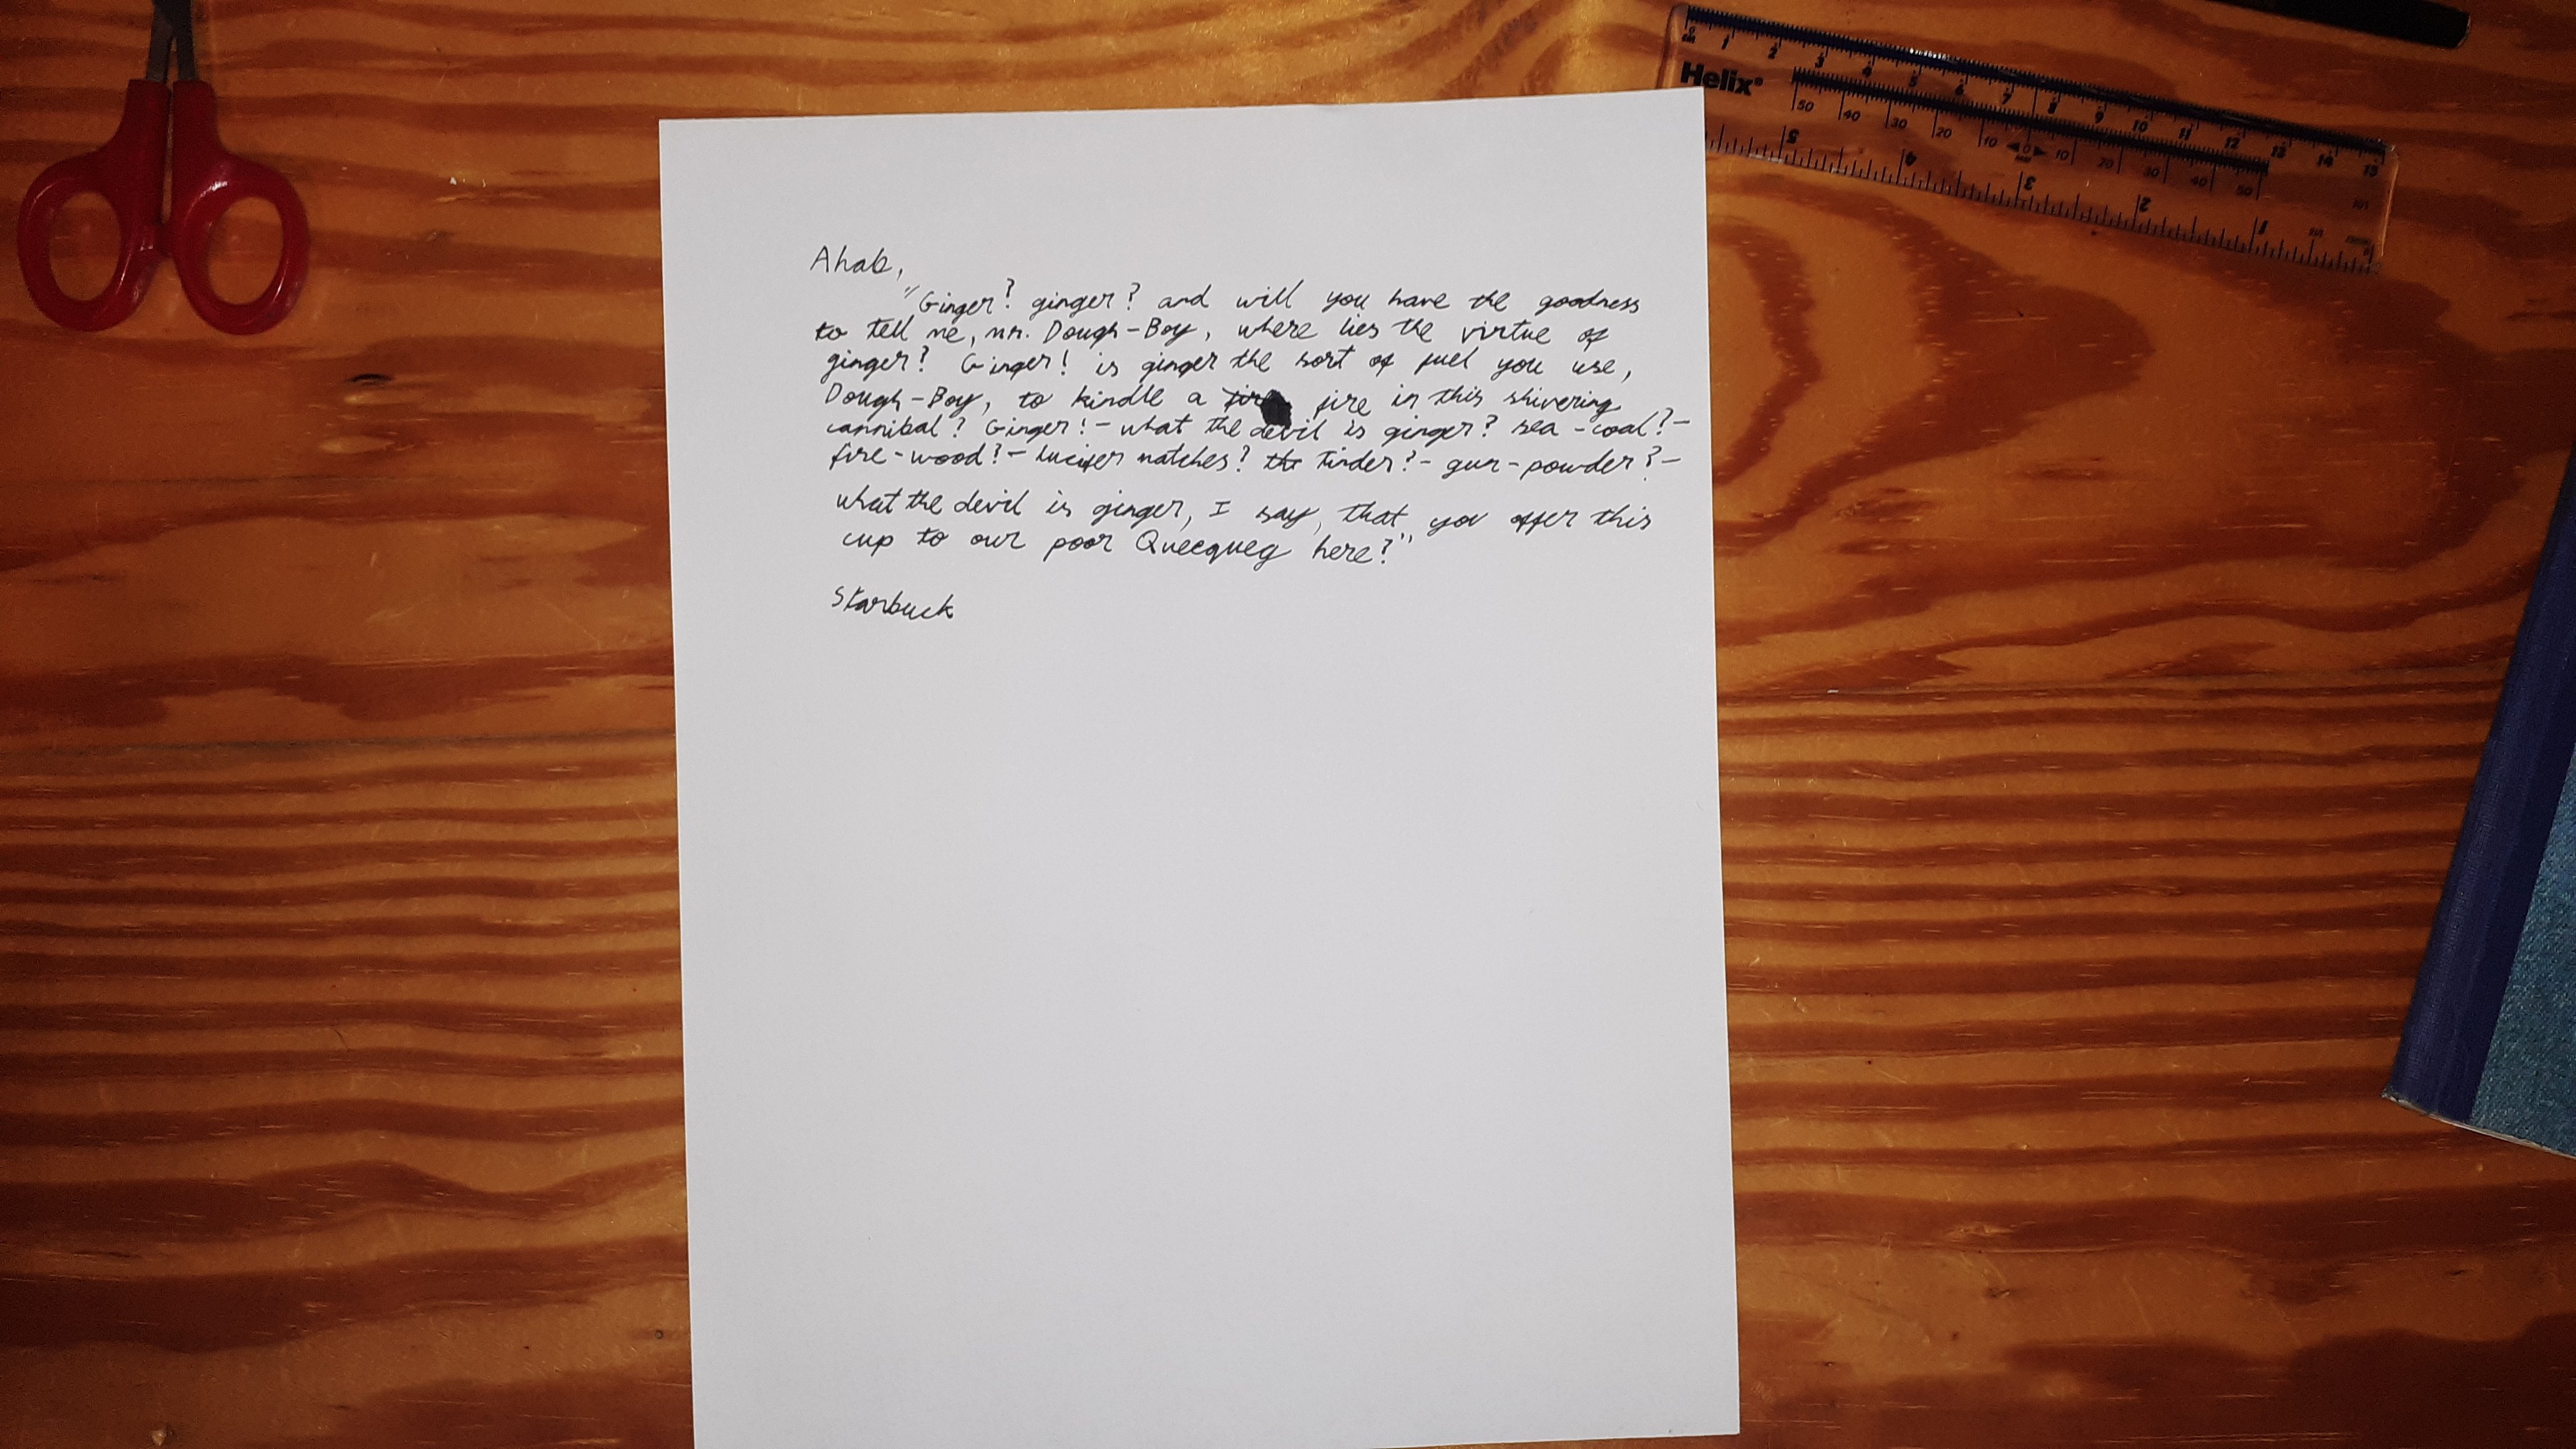 Ahab,
"Ginger? ginger? and will you have the goodness
to tell me, mr. Dough-Boy, where lies the virtue of
ginger? Ginger! is ginger the sort of fuel you use,
Dough-Boy, to kindle a fire fire in this shivering
cannibal? Ginger!- what the devil is ginger? sea-coal?-
fire-wood?- lucifer matches? the tinder?- gun-powder?-
what the devil is ginger, I say, that you offer this
cup to our poor Queequeg here?"
Starbuck
Helix
cm 1 2 3 4 5 6 7 8 9 10 11 12 13 14 15
50 40 30 20 10 0 10 20 30 40 50
5 4 3 2 1